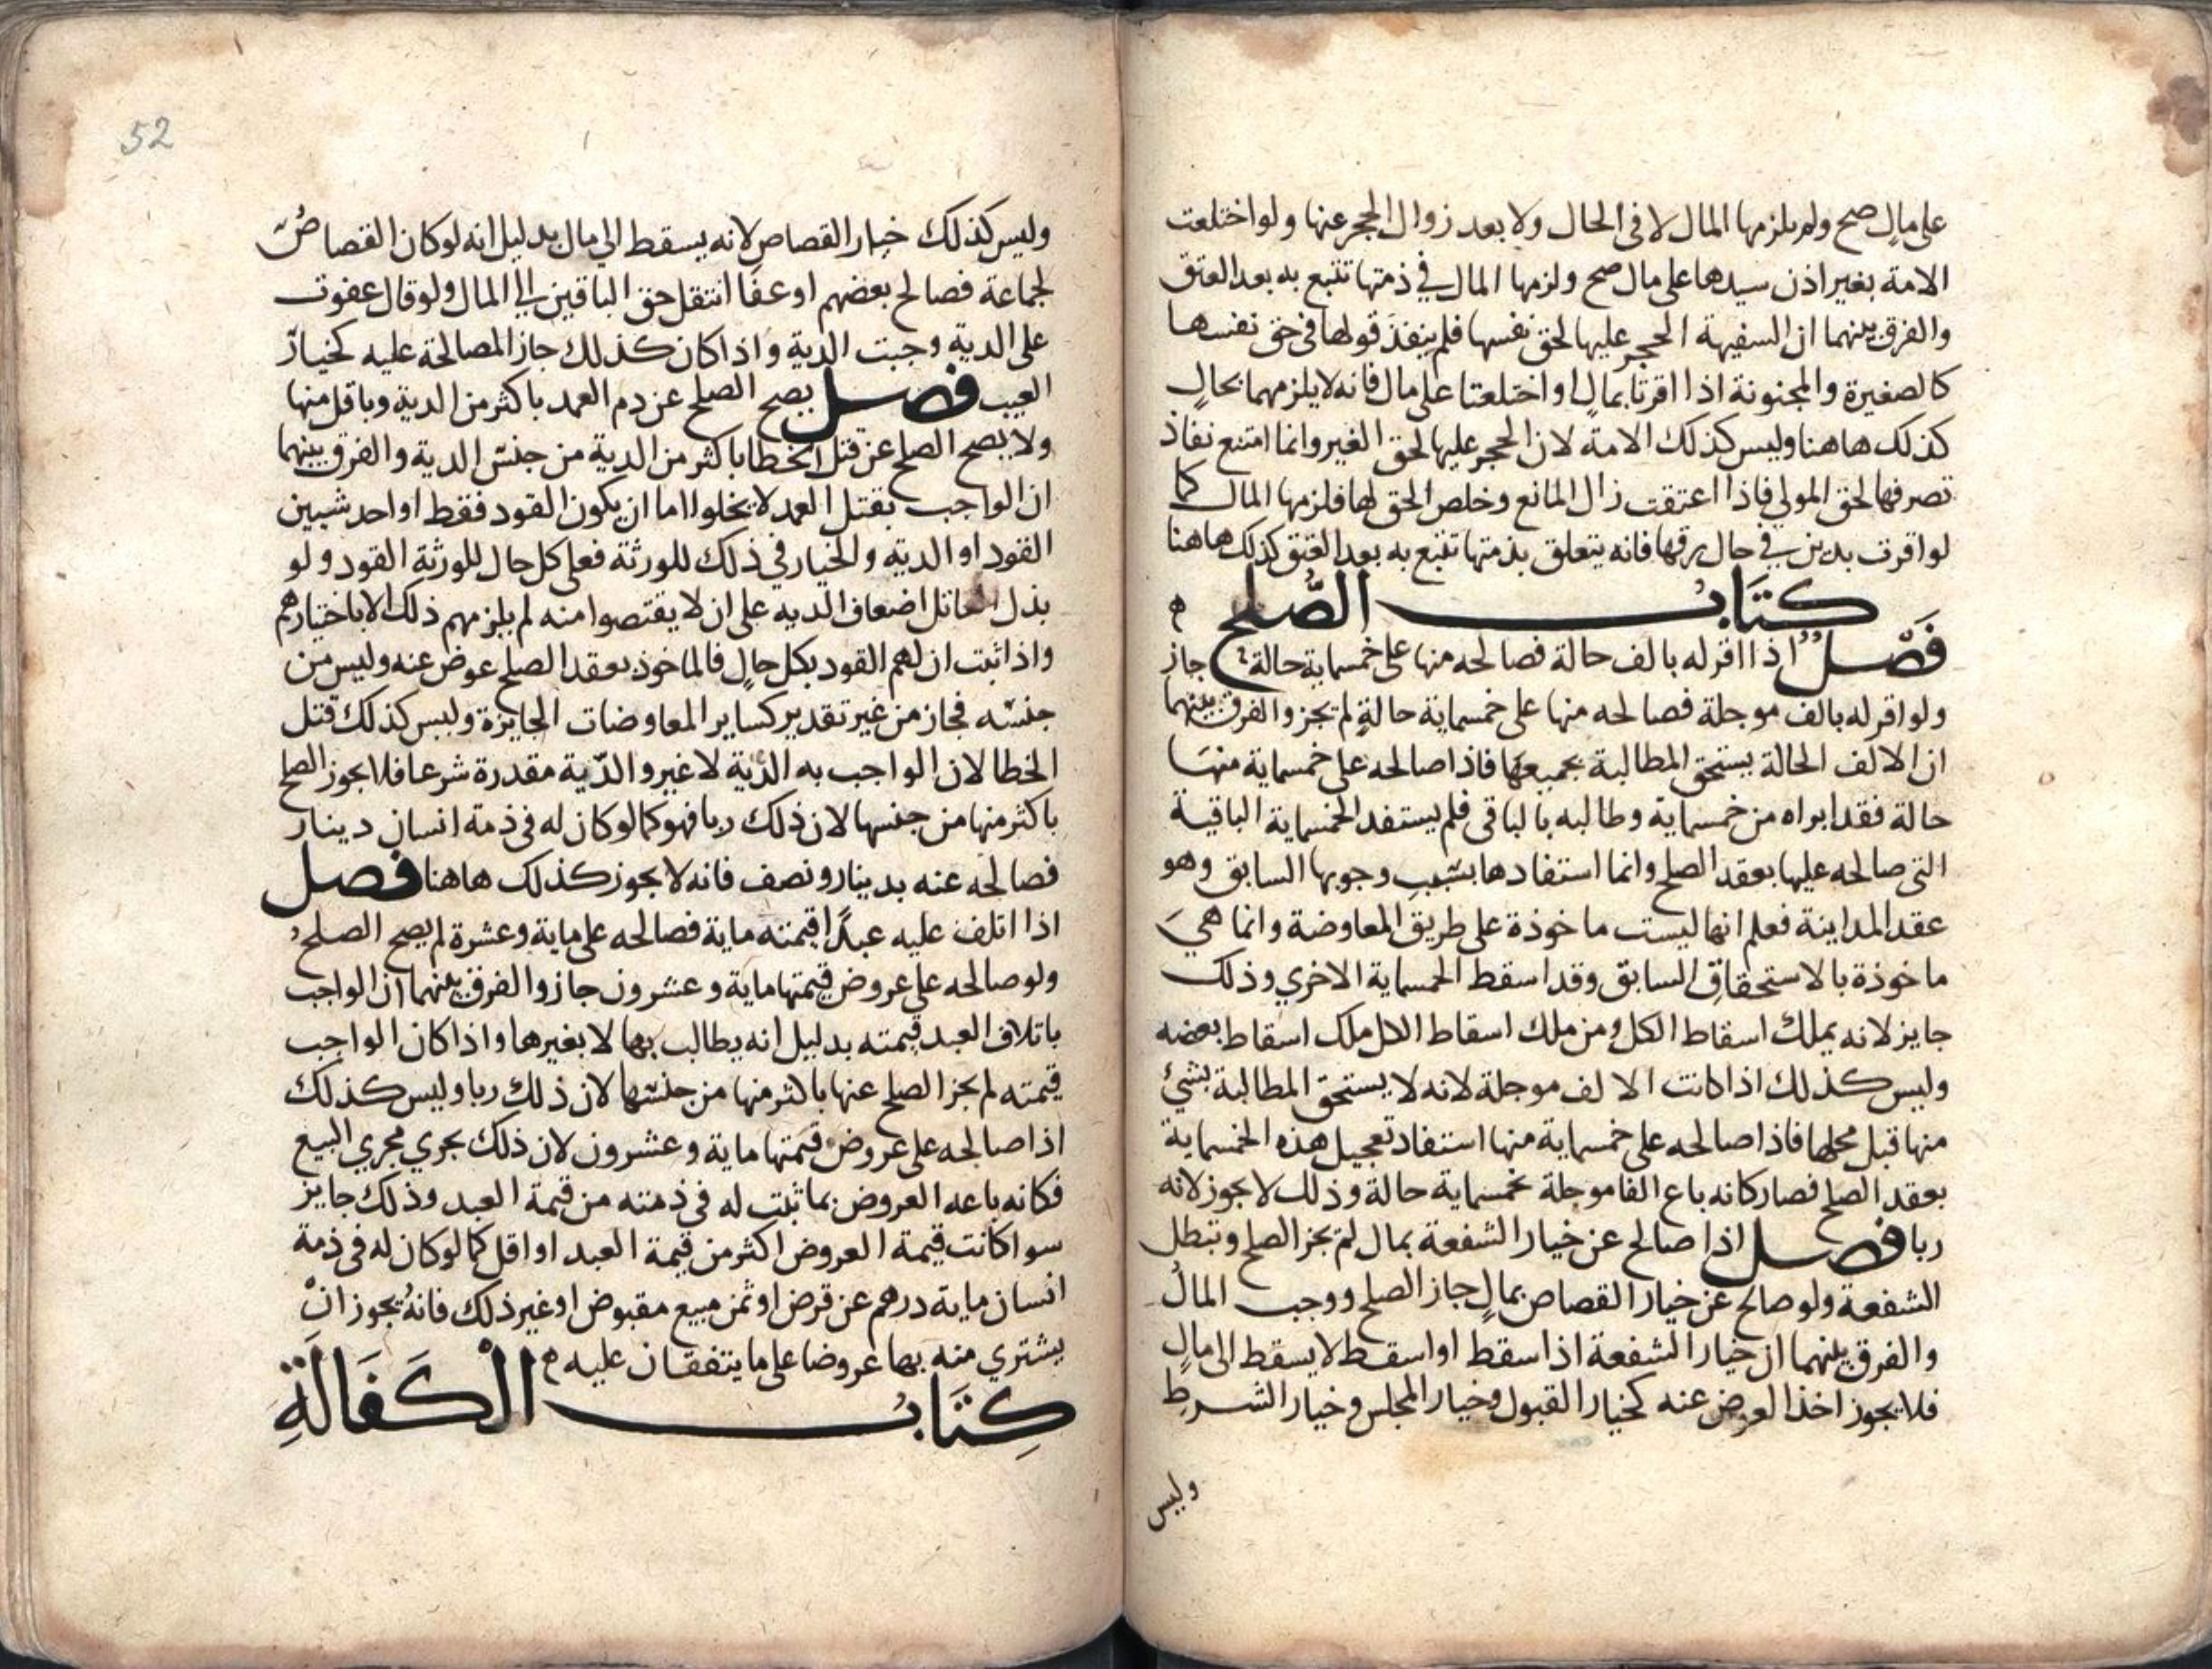 على مال صح ولم يلزمها المال لا في الحال ولا بعد زوال الحجر عنها ولو اختلعت
الامة بغير اذن سيدها على مال صح ولزمها المال في ذمتها تتبع به بعد العتق
والفرق بينهما ان السفيهة الحجر عليها لحق نفسها فلم ينفذ قولها في حق نفسها
كالصغيرة والمجنونة اذا اقرتا بمال او اختلعتا على مال فانه لا يلزمهما بحال
كذلك هاهنا وليس كذلك الامة لان الحجر عليها لحق الغير وانما امتنع نفاذ
تصرفها لحق المولي فاذا اعتقت زال المانع وخلص الحق لها فلزمها المال كما
لو اقرت بدين في حال رقها فانه يتعلق بذمتها تتبع به بعد العتق كذلك هاهنا
كتاب الصلح ه
فصل اذا اقر له بالف حالة فصالحه منها على خمسماية حالة جاز
ولو اقر له بالف موجلة فصالحه منها على خمسماية حالة لم يجز والفرق بينهما
ان الالف الحالة يستحق المطالبة بجميعها فاذا صالحه على خمسماية منها
حالة فقد ابراه من خمسماية وطالبه بالباقي فلم يستفد الخمسماية الباقية
التي صالحه عليها بعقد الصلح وانما استفادها بسبب وجوبها السابق وهو
عقد المداينة فعلم انها ليست ماخوذة على طريق المعاوضة وانما هي
ماخوذة بالاستحقاق السابق وقد اسقط الخمسماية الاخري وذلك
جايز لانه يملك اسقاط الكل ومن ملك اسقاط الكل ملك اسقاط بعضه
وليس كذلك اذا كانت الالف موجلة لانه لا يستحق المطالبة بشئ
منها قبل محلها فاذا صالحه على خمسماية منها استفاد تعجيل هذه الخمسماية
بعقد الصلح فصار كانه باع الفا موجلة بخمسماية حالة وذلك لا يجوز لانه
ربا فصل اذا صالح عن خيار الشفعة بمال لم يجز الصلح وتبطل
الشفعة ولو صالح عن خيار القصاص بمال جاز الصلح ووجب المال
والفرق بينهما ان خيار الشفعة اذا سقط او اسقط لا يسقط الى مال
فلا يجوز اخذ العوض عنه كخيار القبول وخيار المجلس وخيار الشرط
وليس
52
وليس كذلك خيار القصاص لانه يسقط الي مال بدليل انه لو كان القصاص
لجماعة فصالح بعضهم او عفا انتقل حق الباقين الي المال ولو قال عفوت
على الدية وجبت الدية واذا كان كذلك جاز المصالحة عليه كخيار
العيب فصل يصح الصلح عن دم العمد باكثر من الدية وباقل منها
ولا يصح الصلح عن قتل الخطا باكثر من الدية من جنس الدية والفرق بينهما
ان الواجب بقتل العمد لا يخلوا اما ان يكون القود فقط او احد شيين
القود او الدية والخيار في ذلك للورثة فعلى كل حال للورثة القود ولو
بذل القاتل اضعاف الدية على ان لا يقتصوا منه لم يلزمهم ذلك الا باختيارهم
واذا ثبت ان لهم القود بكل حال فالماخوذ بعقد الصلح عوض عنه وليس من
جنسه فجاز من غير تقدير كساير المعاوضات الجايزة وليس كذلك قتل
الخطا لان الواجب به الدية لا غير والدية مقدرة شرعا فلا يجوز الصلح
باكثر منها من جنسها لان ذلك ربا فهو كما لو كان له في ذمة انسان دينار
فصالحه عنه بدينار ونصف فانه لا يجوز كذلك هاهنا فصل
اذا اتلف عليه عبدا قيمته ماية فصالحه على ماية وعشرة لم يصح الصلح
ولو صالحه على عروض قيمتها ماية وعشرون جاز والفرق بينهما ان الواجب
باتلاف العبد قيمته بدليل انه يطالب بها لا بغيرها واذا كان الواجب
قيمته لم يجز الصلح عنها باكثر منها من جنسها لان ذلك ربا وليس كذلك
اذا صالحه على عروض قيمتها ماية وعشرون لان ذلك يجري مجري البيع
فكانه باعه العروض بما ثبت له في ذمته من قيمة العبد وذلك جايز
سوا كانت قيمة العروض اكثر من قيمة العبد او اقل كما لو كان له في ذمة
انسان ماية درهم عن قرض او ثمن مبيع مقبوض او غير ذلك فانه يجوز ان
يشتري منه بها عروضا على ما يتفقان عليه ه
كتاب الكفالة